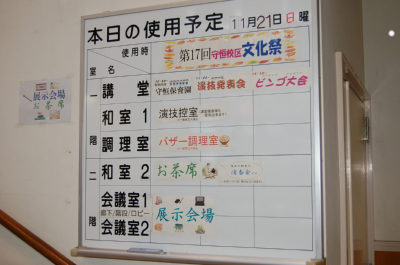 本日の使用予定 11月21日 日曜
使用時
室名
第17回守恒校区文化祭
一階
講堂 守恒保育園 演技発表会 ビンゴ大会
和室1 演技控室
調理室 バザー調理室
二階
和室2 お茶席
会議室1
廊下/階段/ロビー 展示会場
会議室2
展示会場
お茶席